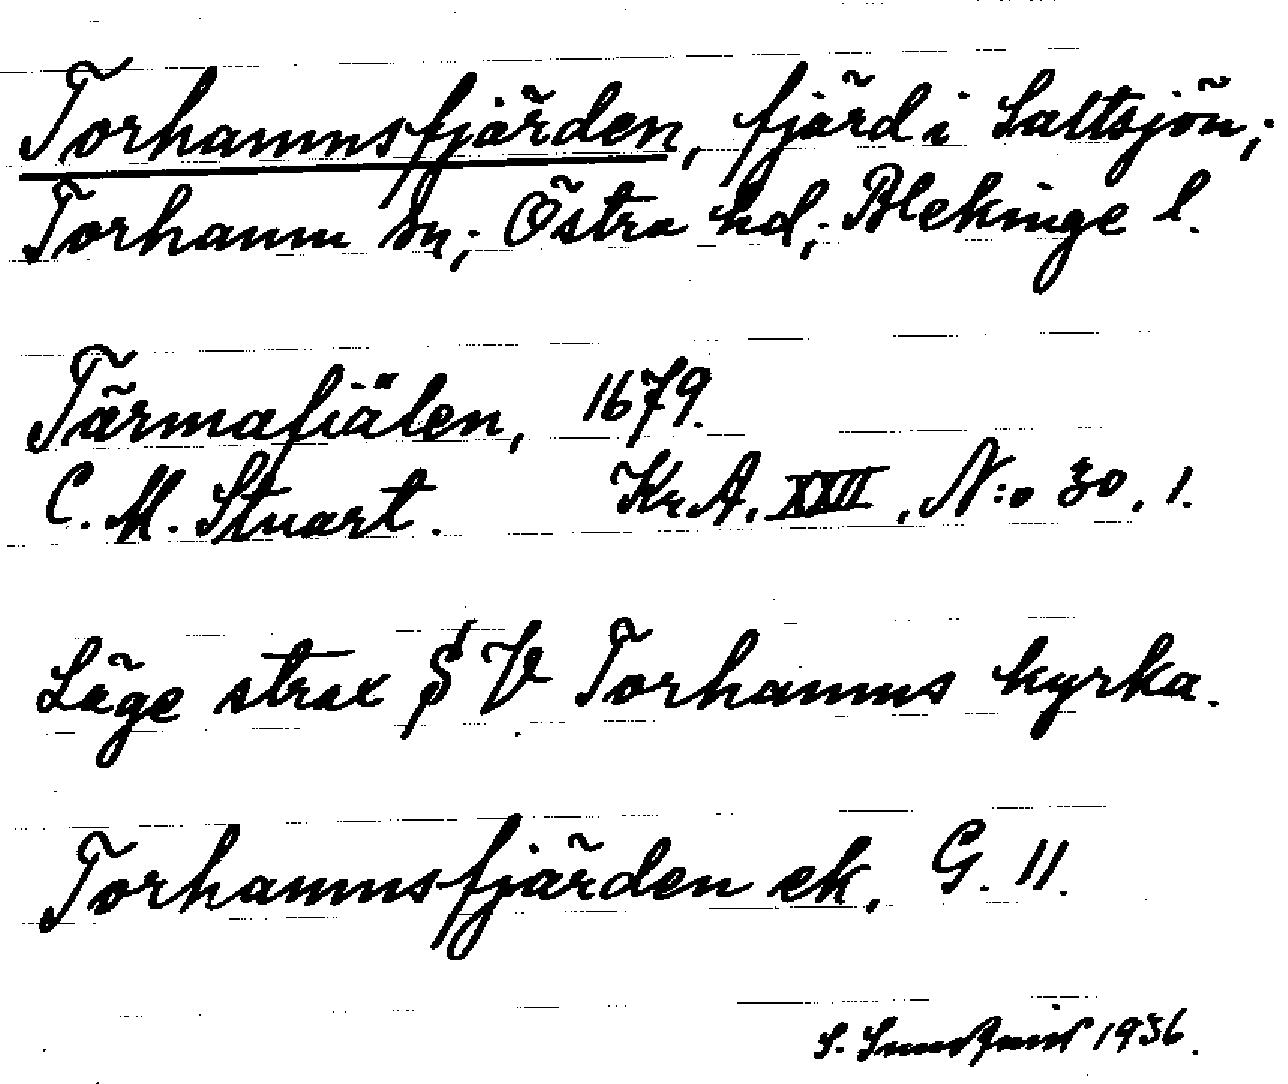 Torhamnsfjärden, fjärd i Saltsjön;
Torhamn sn; Östra hd; Blekinge l.
Tärmafiälen, 1679.
C. M. Stuart. Kr. A. XXII, N:o 30, 1.
Läge strax S V Torhamns kyrka.
Torhamnsfjärden ek. G. 11.
S. 1936.